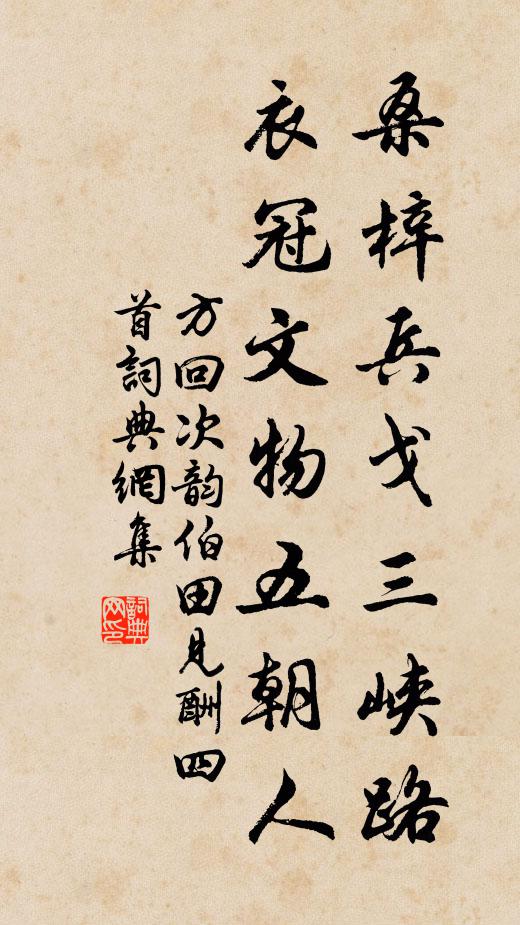 桑梓兵戈三峡路
衣冠文物五朝人
方回次韵伯田见酬四
首詞典網集
詞典网印